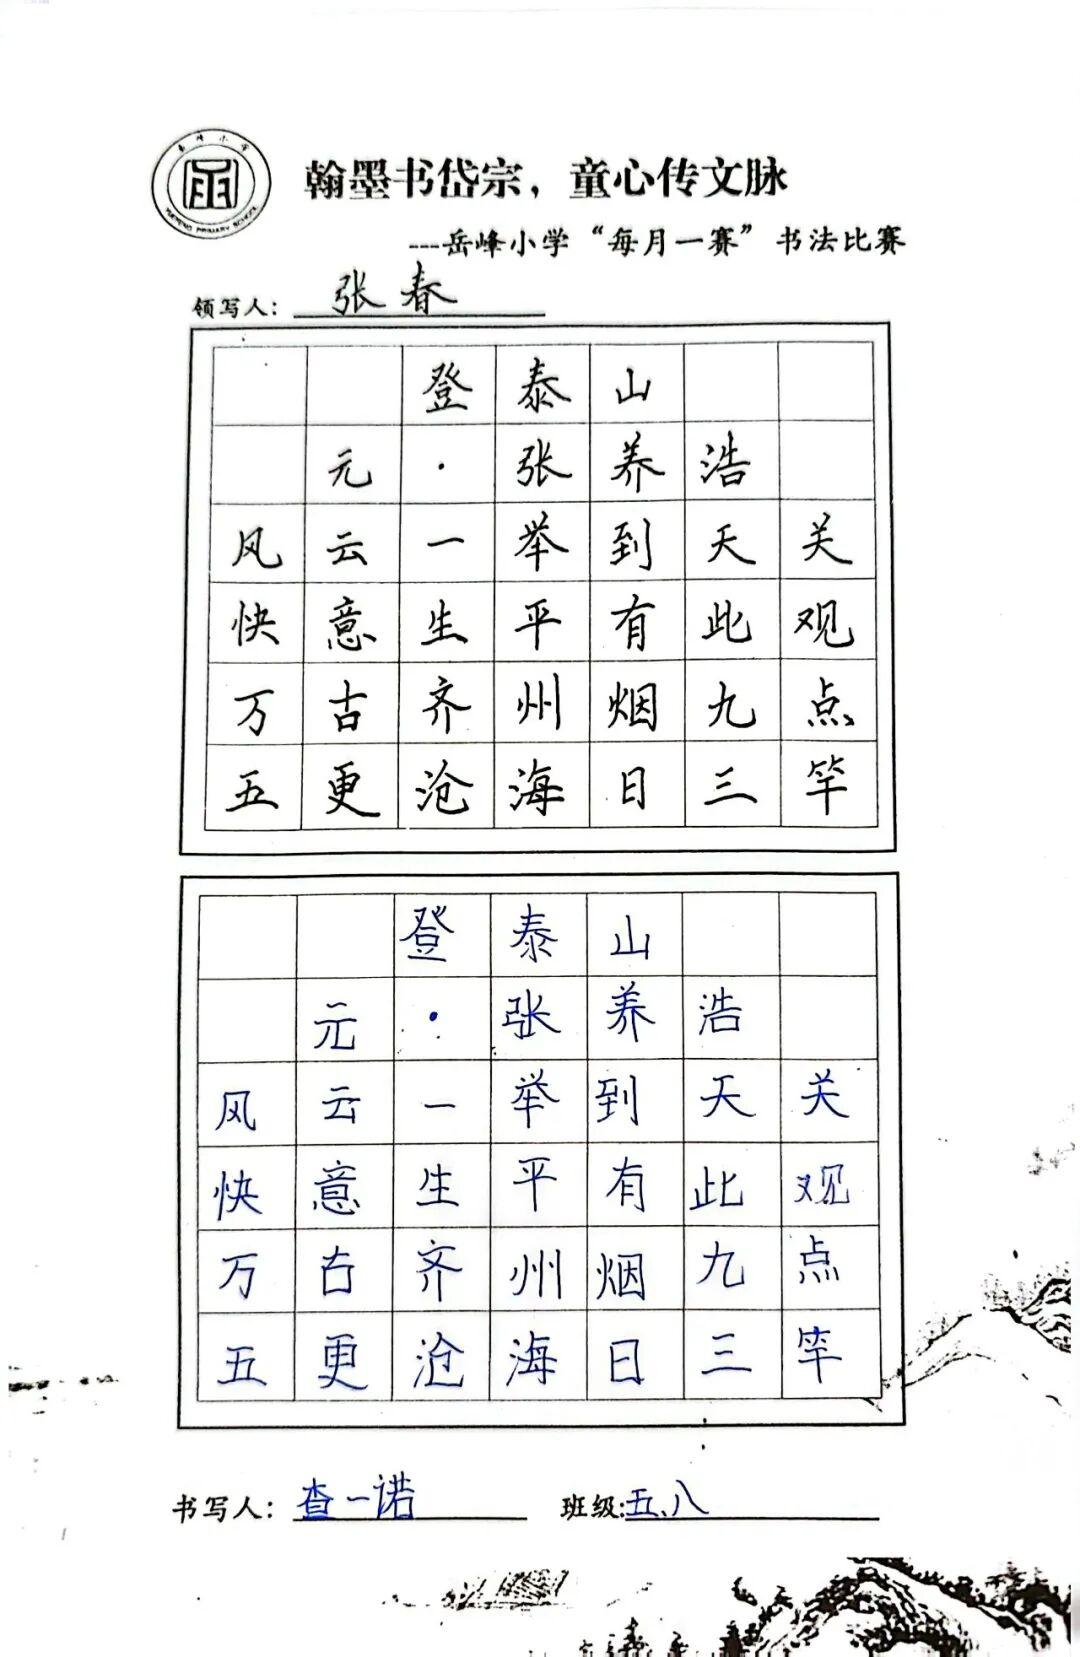 岳峰小学
YUEFENG PRIMARY SCHOOL
翰墨书岱宗，童心传文脉
---岳峰小学“每月一赛”书法比赛
领写人：张春
登泰山
元·张养浩
风云一举到天关
快意生平有此观
万古齐州烟九点
五更沧海日三竿
登泰山
元·张养浩
风云一举到天关
快意生平有此观
万古齐州烟九点
五更沧海日三竿
书写人：查一诺 班级:五、八